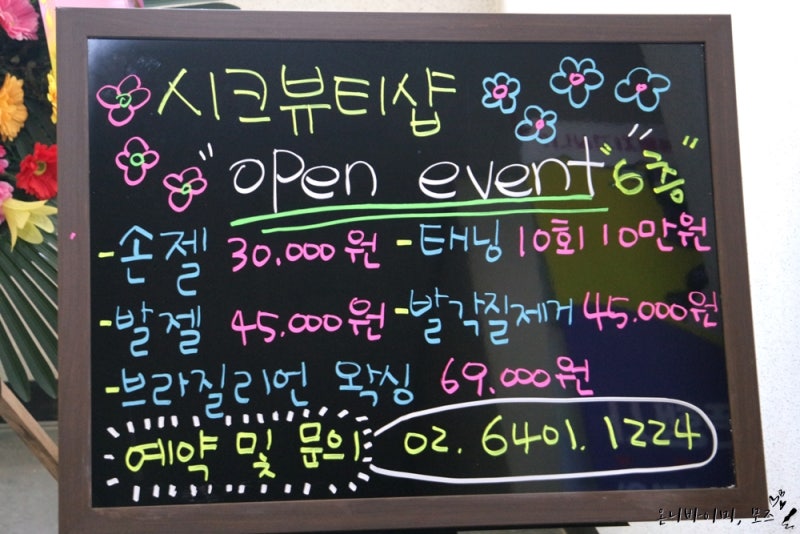 시크뷰티샵
"open event" 6층"
-손젤 30.000원 -태닝 10회 10만원
-발젤 45.000원 -발각질제거 45.000원
-브라질리언 왁싱 69.000원
예약 및 문의 02. 6401. 1224